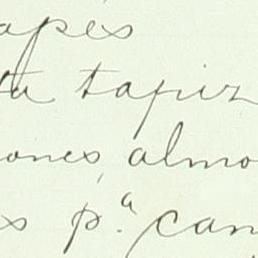 apes
ta tapiz
ones, almo
s p.ª can